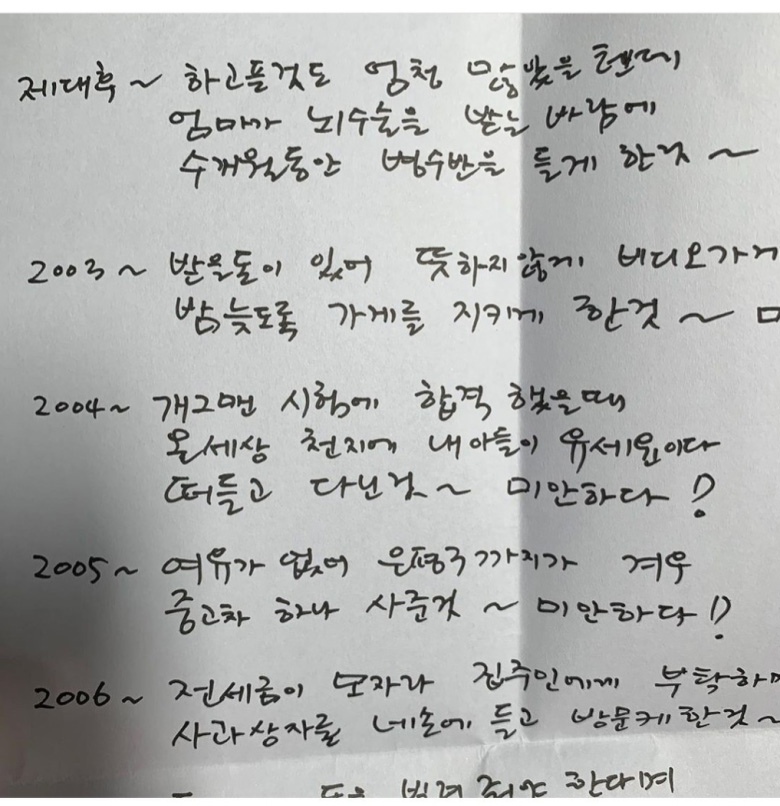 제대후~ 하고픈것도 엄청 많았을 텐데
엄마가 뇌수술을 받는 바람에
수개월동안 병수반을 들게 한것~
2003~ 받을돈이 있어 뜻하지않게 비디오가게
밤늦도록 가게를 지키게 한것~ 미
2004~ 개그맨 시험에 합격 했을때
온세상 천지에 내아들이 유세윤이다
떠들고 다닌것~ 미안하다!?
2005~ 여유가 없어 은평구까지가 겨우
중고차 하나 사준것~ 미안하다!?
2006~ 전세금이 모자라 집주인에게 부탁하며
사과상자를 네손에 들고 방문케한것~
돈을 빌려 줘야 한다며